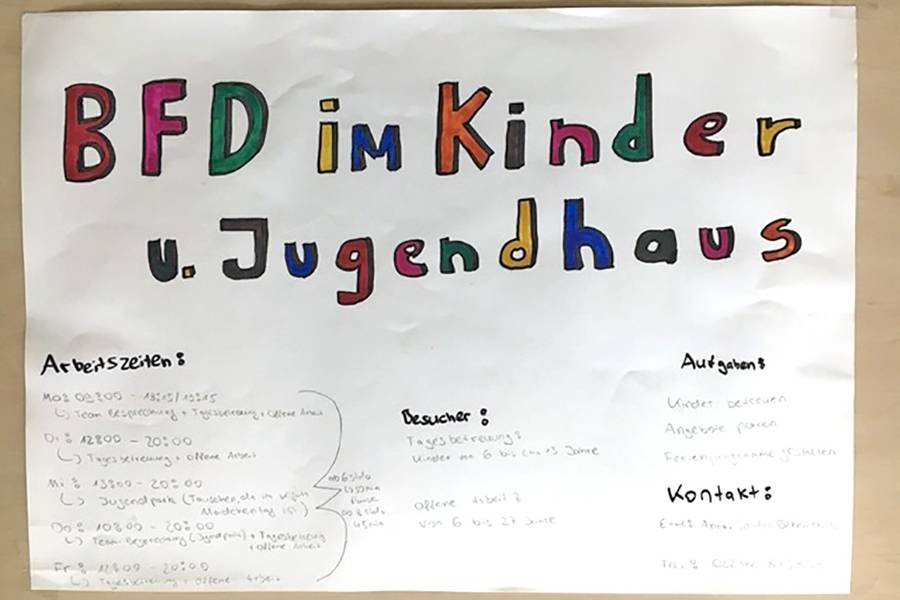 BFD im Kinder
u. Jugendhaus
Arbeitszeiten:
Mo: 09:00 - 18:15/19:15
↳ Team Besprechung + Tagesbetreuung + Offene Arbeit
Di: 12:00 - 20:00
↳ Tagesbetreuung + Offene Arbeit
Mi: 13:00 - 20:00
↳ Jugendpark (Tauschen, da im
Mädchentag ist)
Do: 10:00 - 20:00
↳ Team Besprechung (Jugendpark) + Tagesbetreuung
+ Offene Arbeit
Fr: 12:00 - 20:00
↳ Tagesbetreuung + Offene Arbeit
ab 6 Std
Pause
Besucher:
Tagesbetreuung:
Kinder von 6 bis ca. 13 Jahre
Offene Arbeit:
von 6 bis 27 Jahre
Aufgaben:
Kinder betreuen
Angebote planen
Ferienprogramme gestalten
Kontakt:
Email:
Tel.: